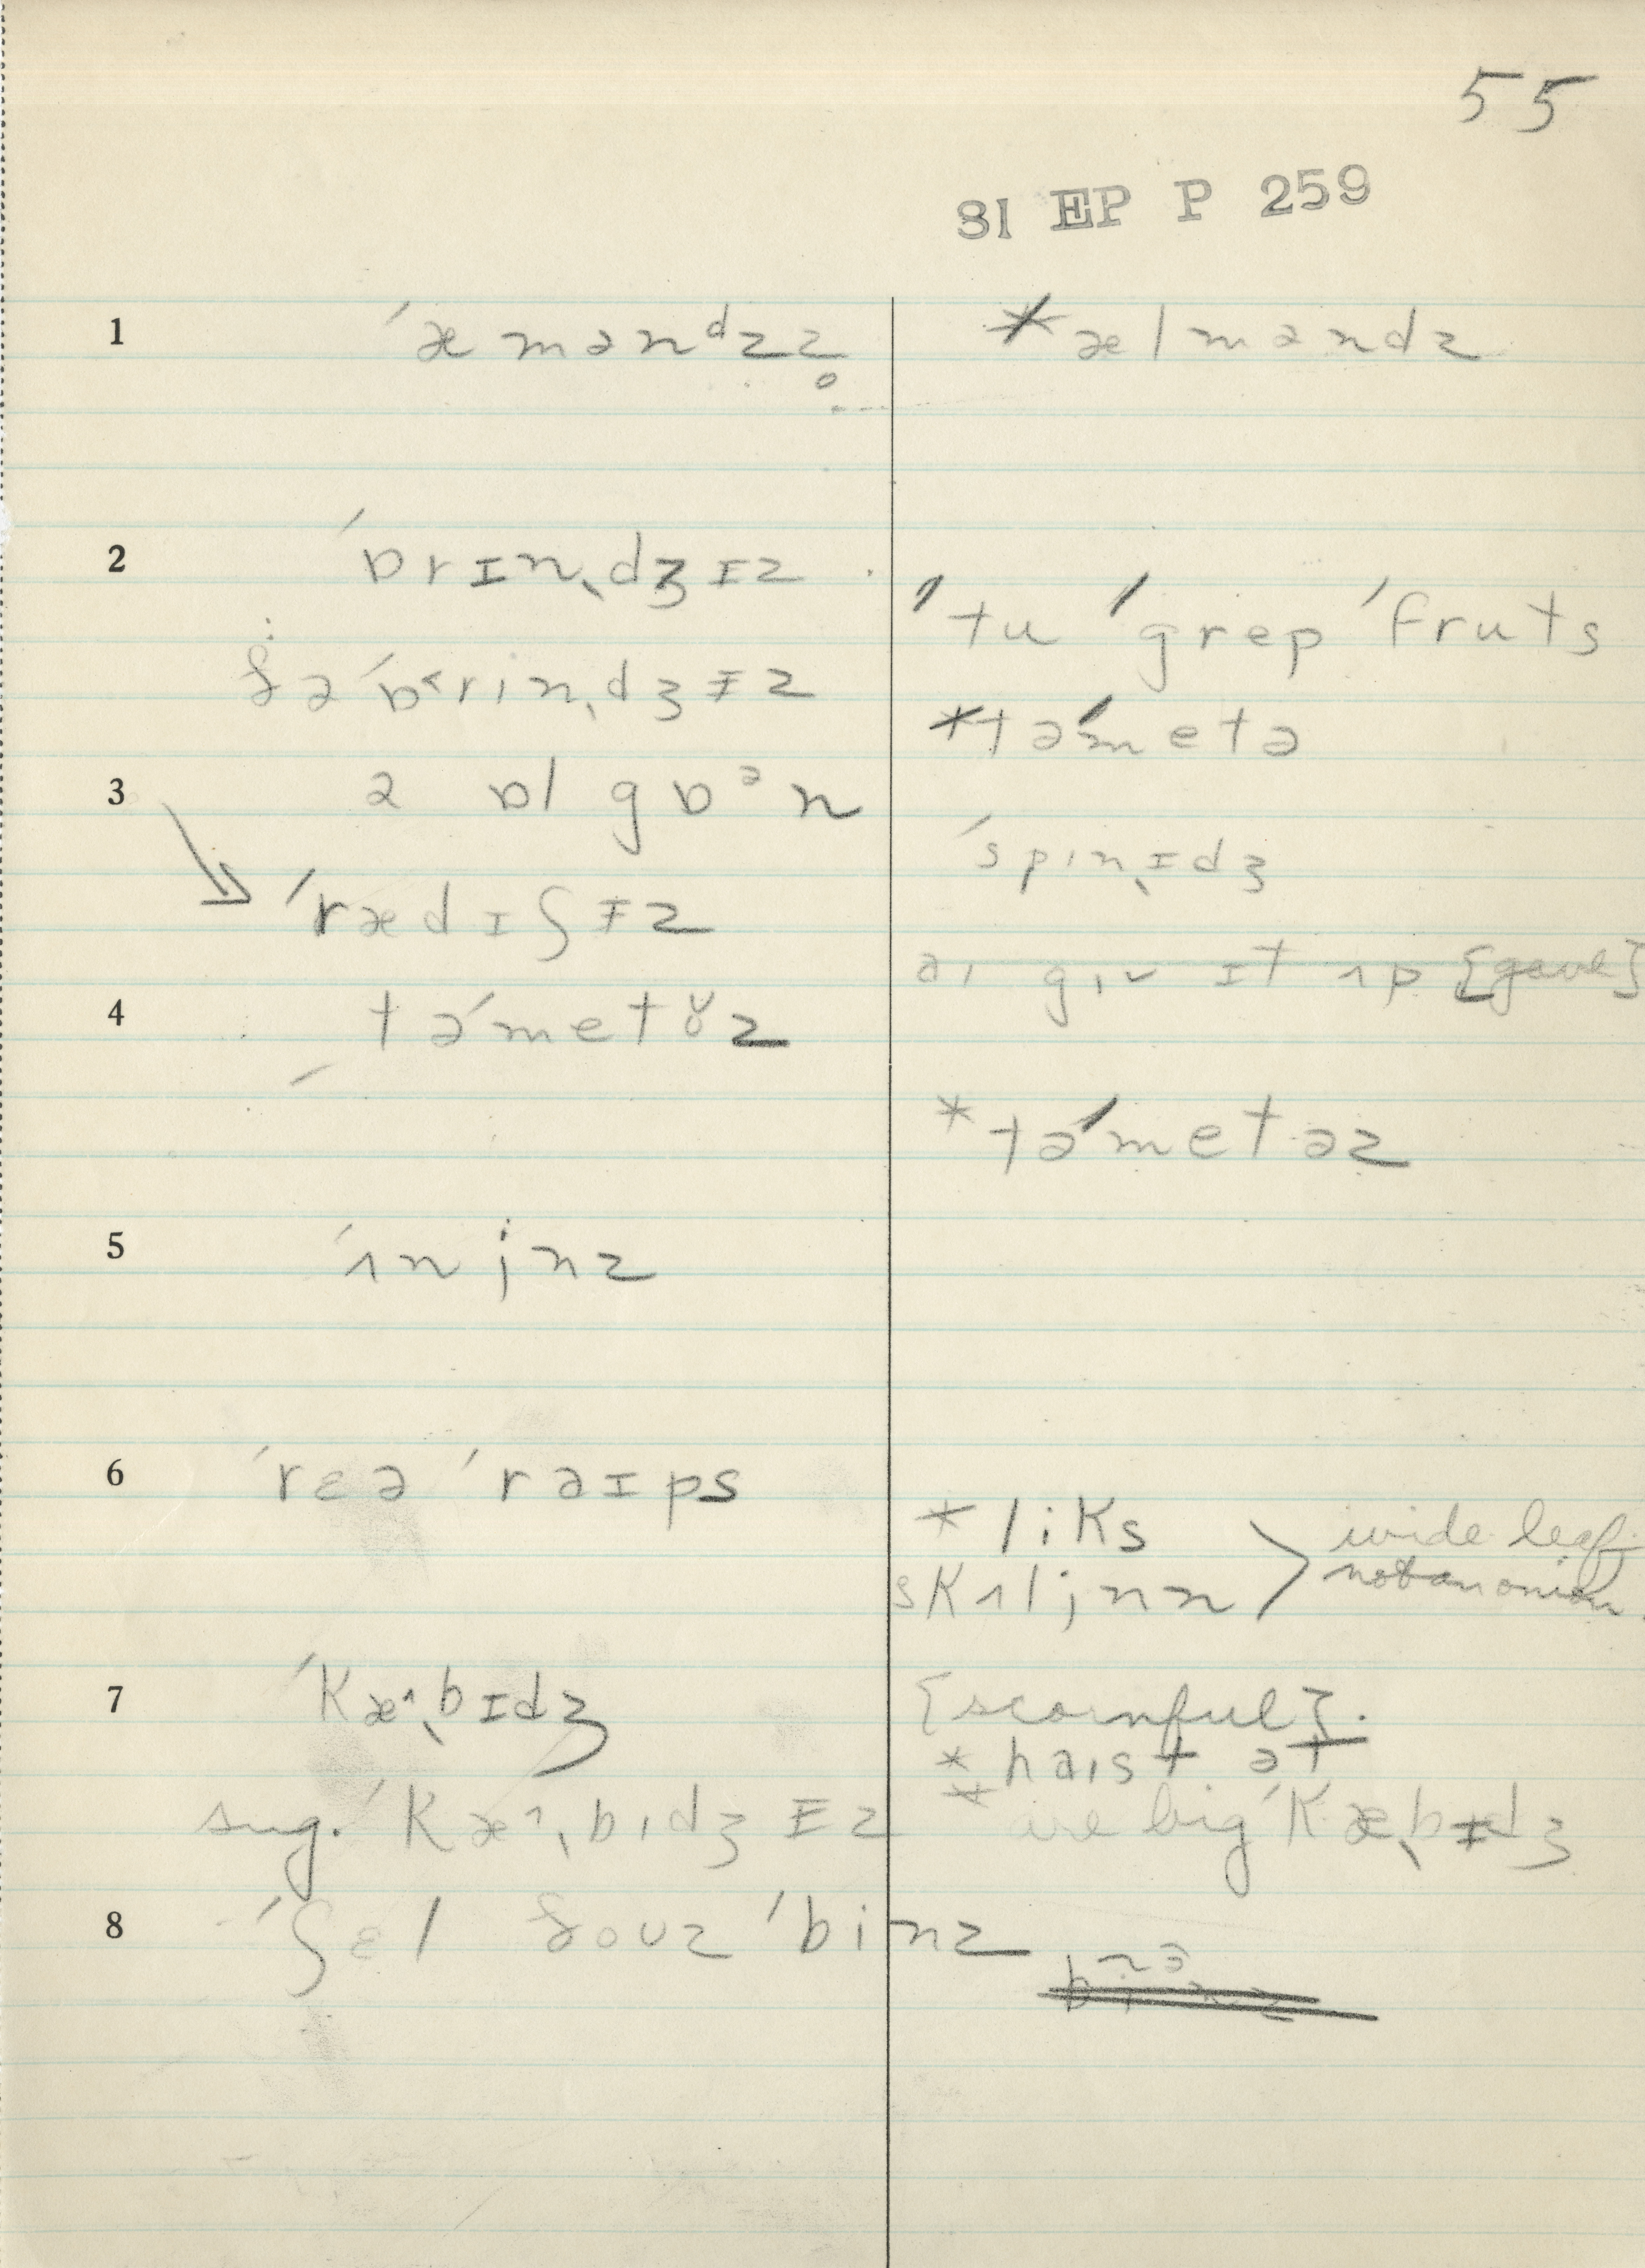 55
SI EP P 259
1 ˈæmənᵈzz̥
*ælməndz
2 ˈɒrɪn̩dʒɪz
ˈtu ˈgrep ˈfruts
ðə ˈɒ˂rin̩dʒᵻz
*təˈmetə
3 ə ɒl gɒᵊn
ˈspin̩ɪdʒ
ˈrædɪʃᵻz
ai giv ɪt ʌp {gave}
4 təˈmetɤz
*təˈmetəz
5 ˈʌnjnz
6 ˈrɛə ˈrəɪps
*liks
skʌljnn > wide leaf
not an onion.
7 ˈkæ^̩bɪdʒ
{scornful}.
*haist ət
sug. ˈkæ^̩bidʒᵻz
* are big ˈkæ̩bᵻdʒ
8 ˈʃɛl ðoʊz ˈbinz